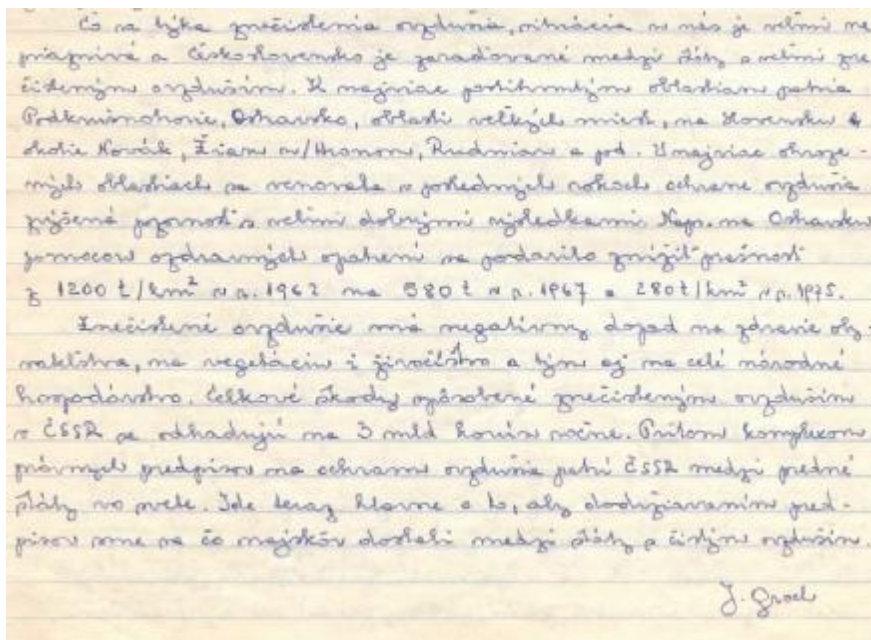 Čo sa týka znečistenia ovzdušia, situácia u nás je veľmi ne
priaznivá a Československo je zaraďované medzi štáty s veľmi zne
čisteným ovzduším. K najviac postihnutým oblastiam patria
Podkrušnohorie, Ostravsko, oblasti veľkých miest, na Slovensku
okolie Novák, Žiaru n/Hronom, Rudnian a pod. V najviac ohroze-
ných oblastiach sa venovala v posledných rokoch ochrane ovzdušia
zvýšená pozornosť s veľmi dobrými výsledkami. Napr. na Ostravsku
pomocou ozdravných opatrení sa podarilo znížiť prašnosť
z 1200 t/km² v r. 1962 na 580 t v r. 1967 a 280 t/km² v r. 1975.
Znečistené ovzdušie má negatívny dopad na zdravie oby-
vateľstva, na vegetáciu i živočíšstvo a tým aj na celé národné
hospodárstvo. Celkové škody spôsobené znečisteným ovzduším
v ČSSR sa odhadujú na 3 mld korún ročne. Pritom komplexom
právnych predpisov na ochranu ovzdušia patrí ČSSR medzi predné
štáty vo svete. Ide teraz hlavne o to, aby dodržiavaním pred-
pisov sme sa čo najskôr dostali medzi štáty s čistým ovzduším.
J.